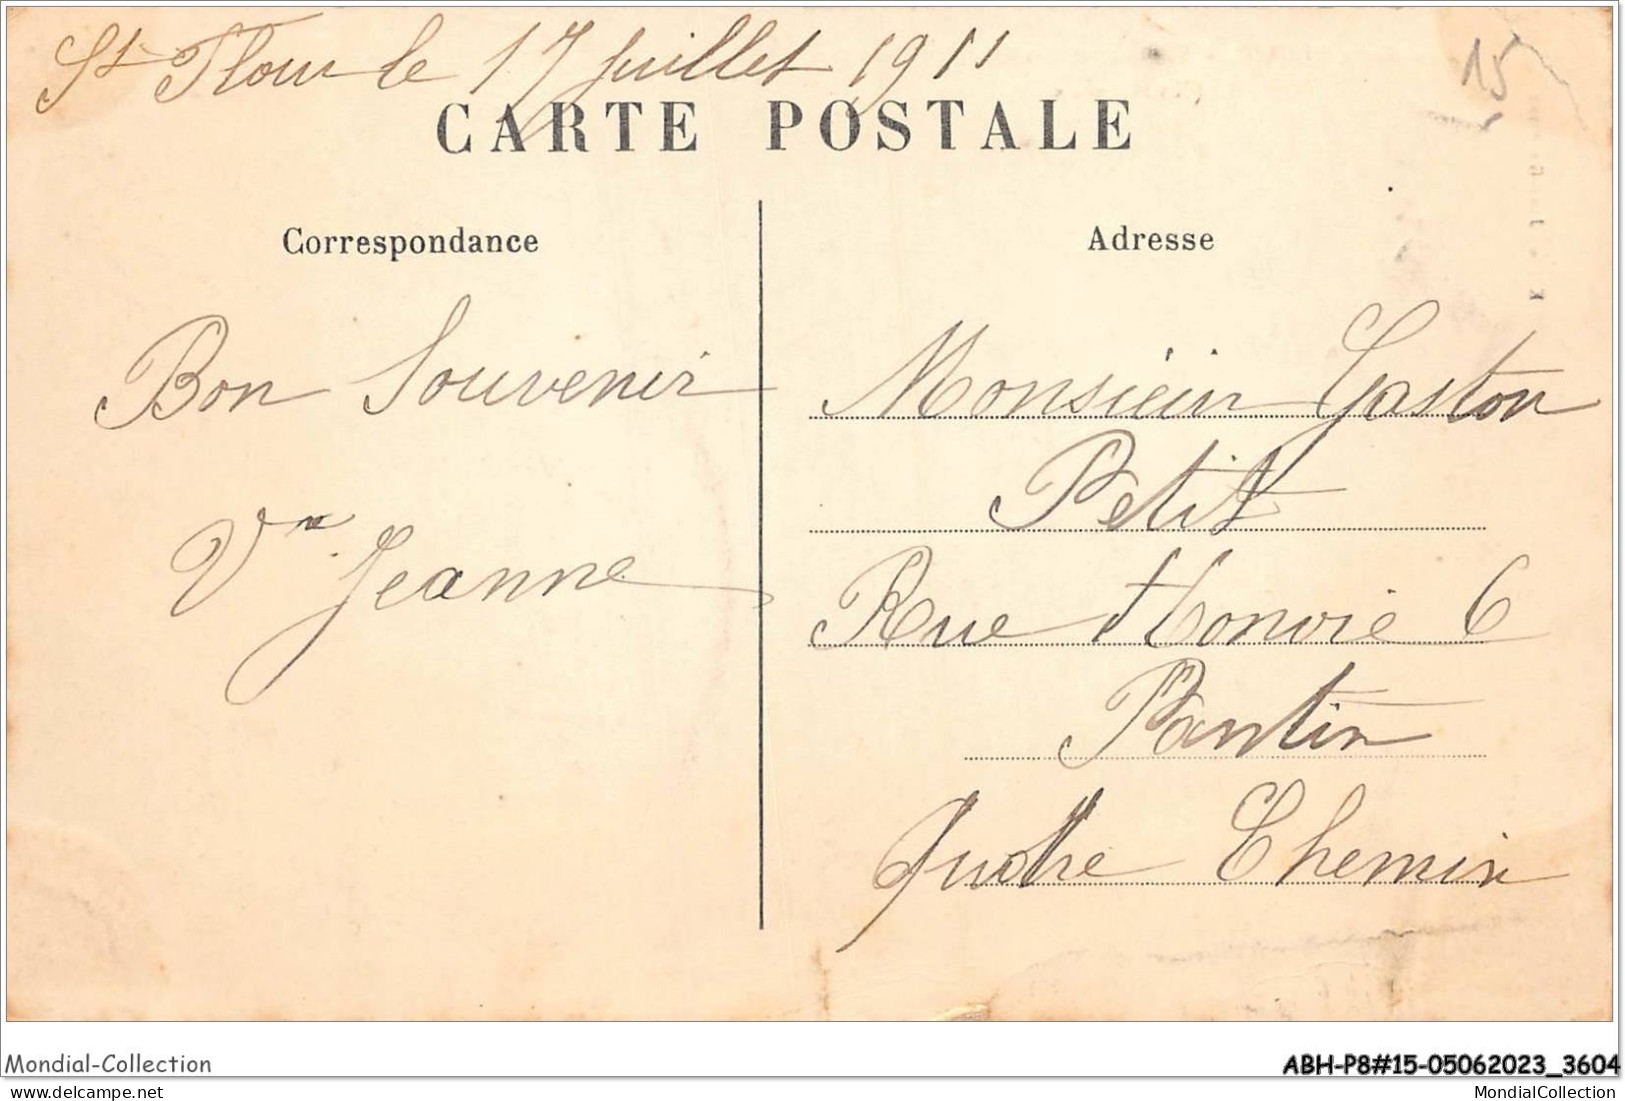 St Flour le 17 Juillet 1911
15
CARTE POSTALE
Correspondance
Adresse
Bon Souvenir
Vve Jeanne
Monsieur Gaston
Petit
Rue Honoré 6
Pantin
Quatre Chemin
Mondial-Collection
ABH-P8#15-05062023_3604
delcampe.net
MondialCollection